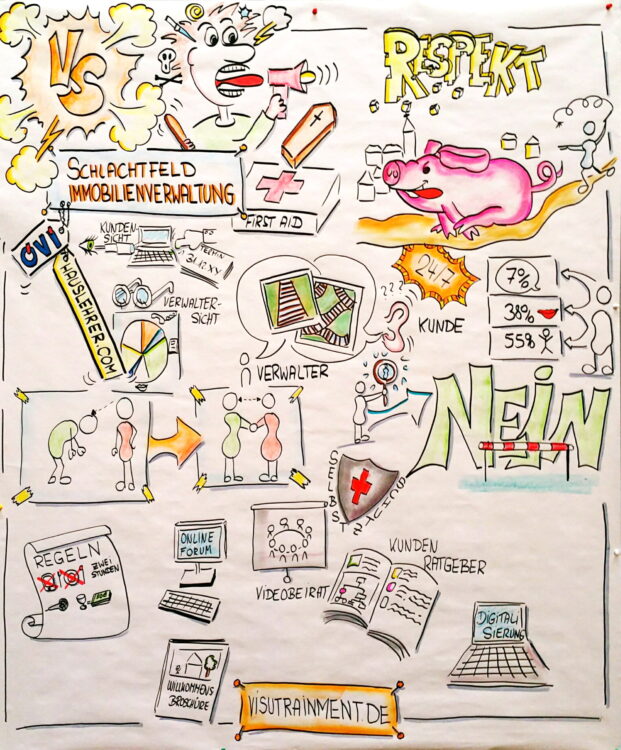 VS
RESPEKT
SCHLACHTFELD
IMMOBILIENVERWALTUNG
FIRST AID
ÖVI
HAUSLEHRER.COM
KUNDEN
SICHT
TERMIN
31.12.XY
VERWALTER-
SICHT
24/7
???
KUNDE
VERWALTER
7%
38%
55%
NEIN
SELBSTSCHUTZ
REGELN
ZWEI
STUNDEN
ONLINE
FORUM
VIDEOBEIRAT
KUNDEN
RATGEBER
DIGITALI
SIERUNG
WILLKOMMENS
BROSCHÜRE
VISUTRAINMENT.DE